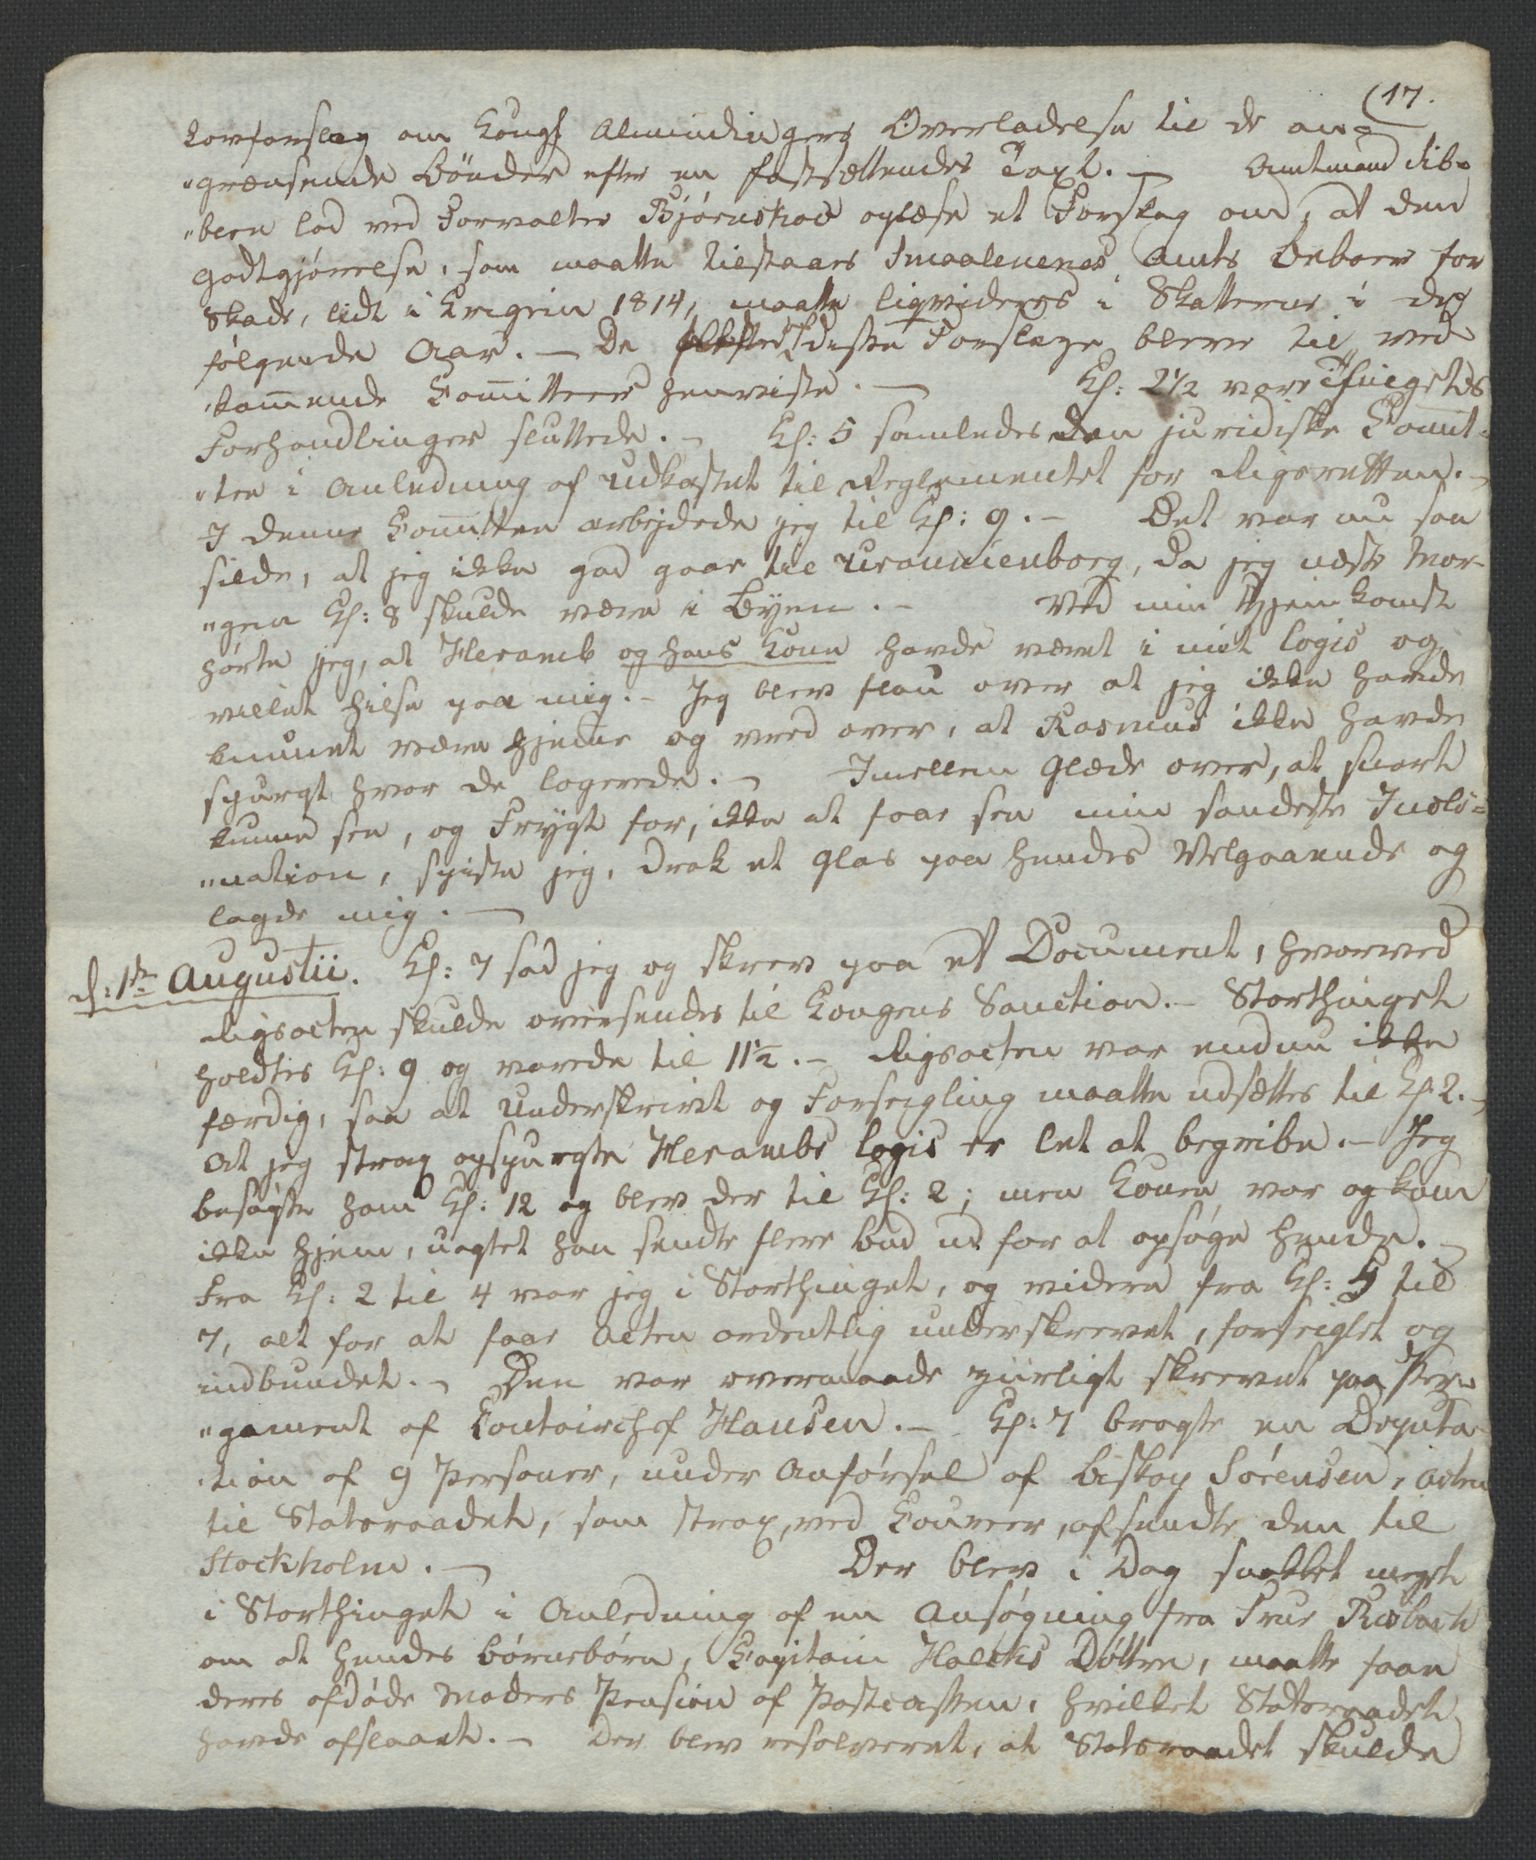 (17.
Lovforslag om Kongl Almindingers Overladelse til de an=
"grændsende Bönder efter en fastsættendes Taxt. — Amtmand Sib=
"bern lod ved Forvalter Bjørnskov oplæse et Forslag om, at den
Godtgjørelse, som maatte tilstaaes Smaalenenes Amts Beboer for
Skade, lidt i Krigen 1814, maatte liqvideres i Skatterne i de
følgende Aar. — De fleste af disse Forslage bleve til ved
"kommende Comitteer henviste. — Kl: 2½ vare Thingets
Forhandlinger sluttede. — Kl: 5 samledes den juridiske Comit=
"tee i Anledning af Udkastet til Reglementet for Rigsretten. —
I denne Comittee arbejdede jeg til Kl: 9. — Det var nu saa
silde, at jeg ikke gad gaae til Uranienborg, da jeg næste Mor=
"gen Kl: 8 skulde være i Byen. — Ved min Hjemkomst
hørte jeg, at Heramb og hans Kone havde været i mit Logis og
villet hilse paa mig. — Jeg blev flau over at jeg ikke havde
kunnet være hjemme og vred over, at Rasmus ikke havde
spurgt hvor de logerede. — Imellem Glæde over, at snart
kunne see, og Frygt for, ikke at faae see min sandeste Incli=
"nation, spiste jeg, drak et Glas paa hendes Velgaaende og
lagde mig. —
d: 1ste Augustii. Kl: 7 sad jeg og skrev paa et Document, hvorved
Rigsacten skulde oversendes til Kongens Sanction. — Storthinget
holdtes Kl: 9 og varede til 11½. — Rigsacten var endnu ikke
færdig, saa at Underskrivt og Forsegling maatte udsættes til Kl. 2. —
At jeg strax opspurgte Herambs Logis er let at begribe. — Jeg
besøgte ham Kl: 12 og blev der til Kl: 2; men Konen var og kom
ikke hjem, uagtet han sendte flere bud ud for at opsøge hende. —
Fra Kl: 2 til 4 var jeg i Storthinget, og videre fra Kl: 5 til
7, alt for at faae Acten ordentlig underskrevet, forseiglet og
indbundet. — Den var overmaade ziirligt skrevet paa Per=
"gament af Contoirchef Hansen. — Kl: 7 bragte en Deputa=
"tion af 9 Personer, under Anførsel af Biskop Sörensen, Acten
til Statsraadet, som strax, ved Coureer, afsendte den til
Stockholm. — Der blev i Dag snakket meget
i Storthinget i Anledning af en Ansøgning fra Frue Rusbach
om at hendes Börnebörn, Capitain Holcks Döttre, maatte faae
deres afdöde Moders Pension af Postcassen, hvilket Statsraadet
havde afslaaet. — Der blev resolveret, at Statsraadet skulde